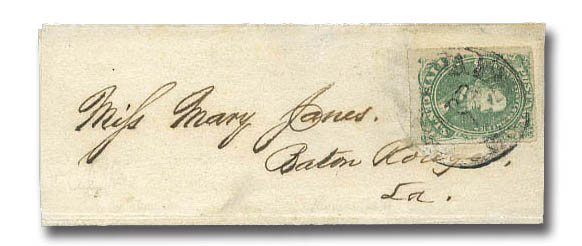 Miss Mary Janes.
Baton Rouge,
La.